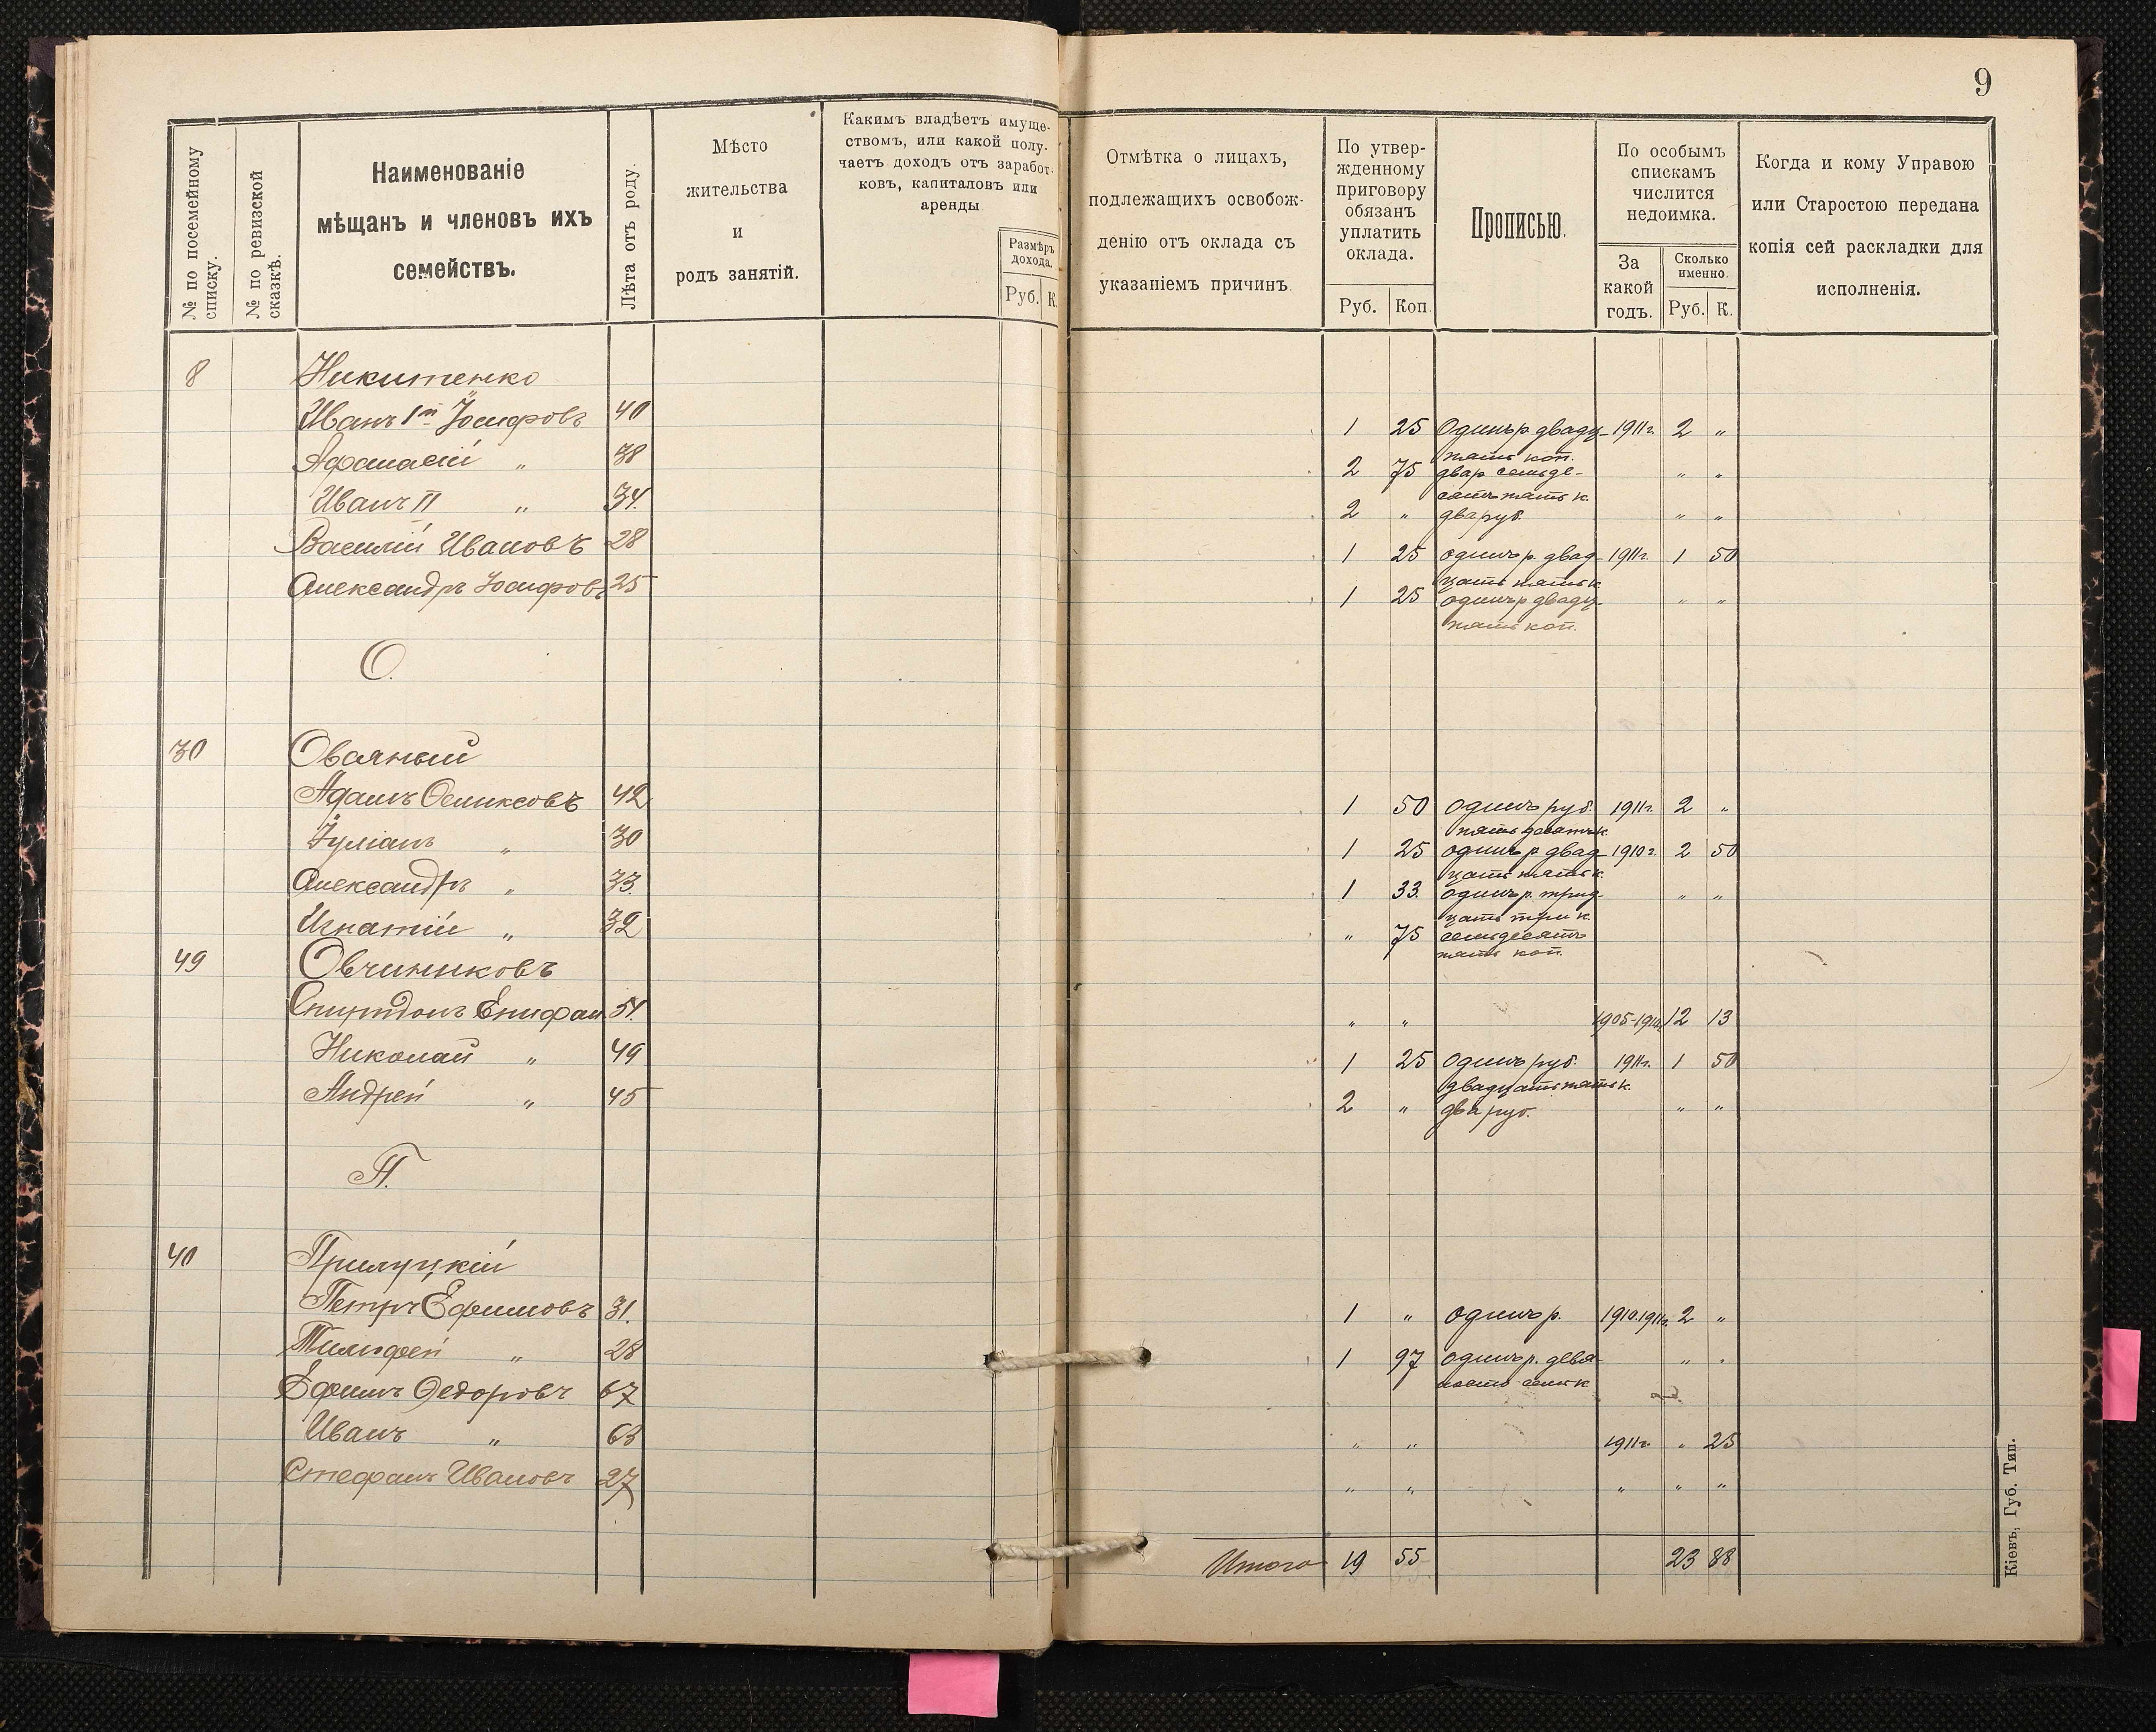 9
№ по посемейному списку.
№ по ревизской сказкѣ.
Наименованіе
мѣщанъ и членовъ ихъ
семействъ.
Лѣта отъ роду.
Мѣсто
жительства
и
родъ занятій.
Какимъ владѣетъ имуще-
ствомъ, или какой полу-
чаетъ доходъ отъ заработ-
ковъ, капиталовъ или
аренды
Размѣръ
дохода.
Руб. К.
Отмѣтка о лицахъ,
подлежащихъ освобож-
денію отъ оклада съ
указаніемъ причинъ.
По утвер-
жденному
приговору
обязанъ
уплатить
оклада.
Руб. Коп.
Прописью.
По особымъ
спискамъ
числится
недоимка.
За
какой
годъ.
Сколько
именно.
Руб. К.
Когда и кому Управою
или Старостою передана
копія сей раскладки для
исполненія.
8 Никитенко
Иванъ 1й Іосифовъ 40 1 25 Одинъ р двадц 1911 г. 2 „
пять коп.
Афанасій „ 38 2 75 два р семьде- „ „
сять пять к
Иванъ II „ 34. 2 „ два руб. „ „
Василій Ивановъ 28 1 25 одинъ р. двад- 1911 г. 1 50
цать пять к
Александръ Іосифовъ 25 1 25 одинъ р двадц- „ „
пять коп.
О.
30 Овсяный
Адамъ Феликсовъ 42 1 50 одинъ руб. 1911 г. 2 „
пять десять к.
Іуліанъ „ 30 1 25 одинъ р двад- 1910 г. 2 50
цать пять к.
Александръ „ 33. 1 33. одинъ р. трид- „ „
цать три к
Игнатій „ 32 „ 75 семьдесять
пять коп.
49 Овчинниковъ
Спиридонъ Епифан. 51. „ „ 1905-1910 12 13
Николай „ 49 1 25 Одинъ руб. 1911 г. 1 50
двадцать пять к.
Андрей „ 45 2 „ два руб. „ „
П.
40 Прилуцкій
Петръ Ефимовъ 31. 1 „ одинъ р. 1910.1911 г. 2 „
Тимофей „ 28 1 97 одинъ р. девя- „ „
носто семь к
Ефимъ Федоровъ 67
Иванъ „ 63 „ „ 1911 г. „ 25
Стефанъ Ивановъ 27 „ „ „ „ „
Итого 19 55 23 88
Кіевъ, Губ. Тип.